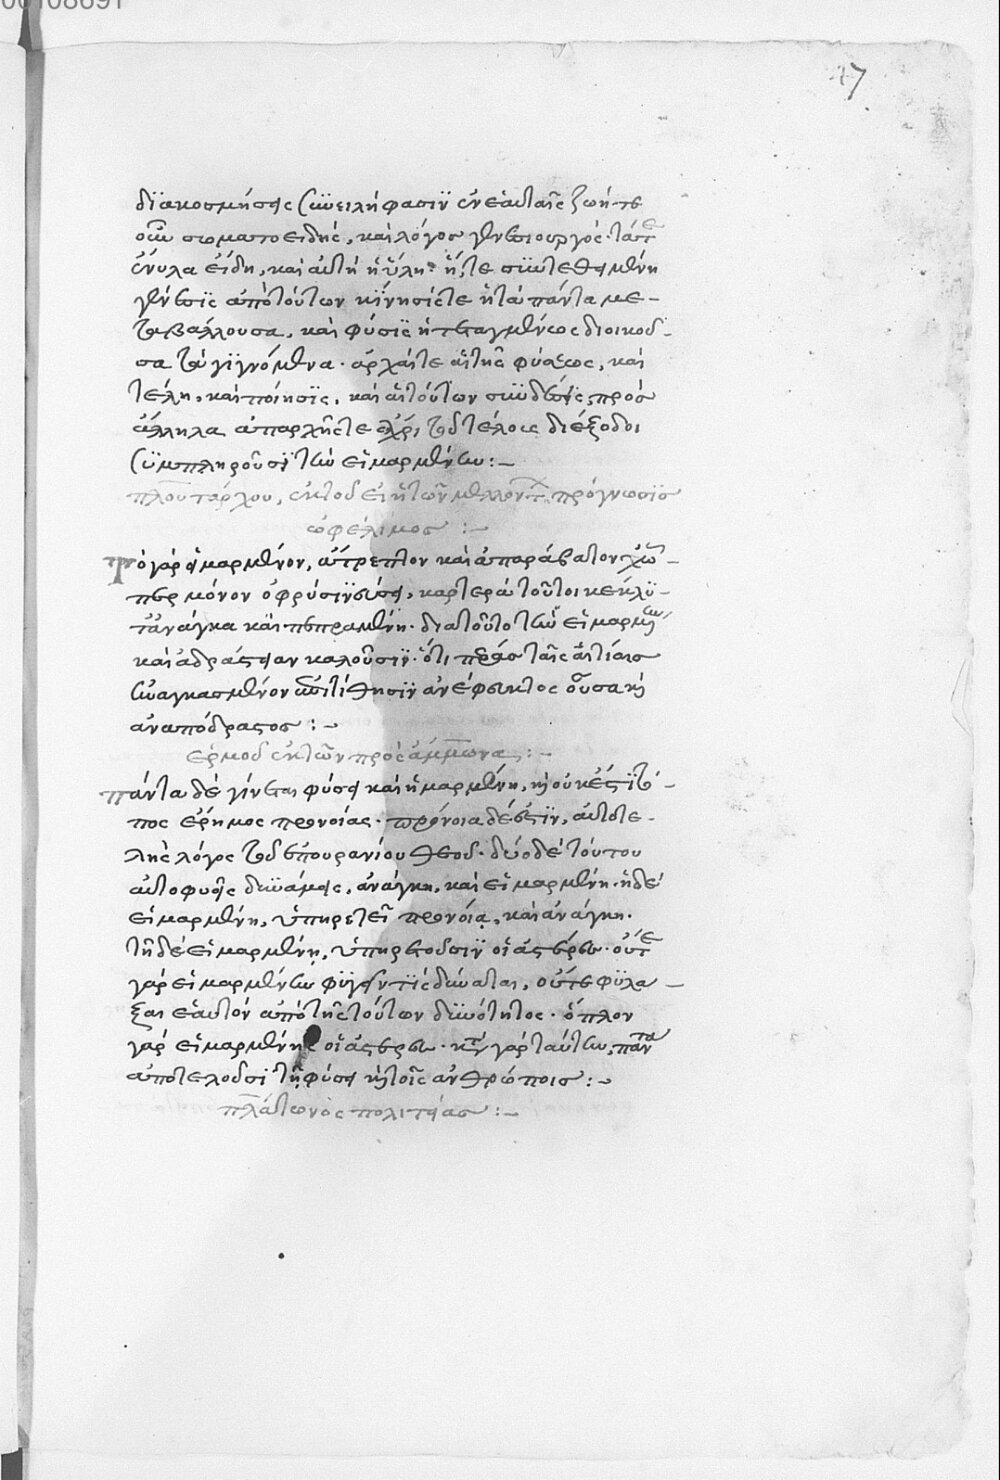 00108691
47
διακοσμήσεις συνειλήφασιν ἐν ἑαυταῖς ζωή τε
οὖν σωματοειδὴς, καὶ λόγος γενεσιουργός· τά τε
ἔνυλα εἴδη, καὶ αὐτὴ ἡ ὕλη· ἥ τε συντεθειμένη
γένεσις ἀπὸ τούτων κίνησίς τε ἡ τὰ πάντα με-
ταβάλλουσα, καὶ φύσις ἡ τεταγμένως διοικοῦ-
σα τὰ γιγνόμενα· ἀρχαί τε αἱ τῆς φύσεως, καὶ
τέλη, καὶ ποίησις, καὶ αἱ τούτων συνδέσεις πρὸς
ἄλληλα ἀπαρχῆς τε ἄχρι τοῦ τέλους διέξοδοι
συμπληροῦσι τὴν εἱμαρμένην:–
πλουτάρχου, ἐκ τοῦ εἰ ἡ τῶν μελλόντων πρόγνωσις
ὠφέλιμος :–
Τὸ γὰρ εἱμαρμένον, ἄτρεπτον καὶ ἀπαράβατον χὥ-
περ μόνον ὀφρύσι νεύσῃ, καρτερὰ τούτοι κέκλω-
τ' ἀνάγκα καὶ πεπραμένη. διὰ τοῦτο τὴν εἱμαρμένην
καὶ ἀδράστειαν καλοῦσιν· ὅτι πέρας ταῖς αἰτίαις
ἠναγκασμένον ἐπιτίθησιν ἀνέφικτος οὖσα καὶ
ἀναπόδραστος :–
ἑρμοῦ ἐκ τῶν πρὸς ἄμμωνα :–
πάντα δὲ γίνεται φύσει καὶ εἱμαρμένη, καὶ οὐκ ἔστι τό-
πος ἔρημος προνοίας· πρόνοια δέ ἐστιν, αὐτοτε-
λὴς λόγος τοῦ ἐπουρανίου θεοῦ· δύο δὲ τούτου
αὐτοφυεῖς δυνάμεις, ἀνάγκη, καὶ εἱμαρμένη· ἡ δὲ
εἱμαρμένη, ὑπηρετεῖ προνοίᾳ, καὶ ἀνάγκῃ.
τῇ δὲ εἱμαρμένῃ, ὑπηρετοῦσιν οἱ ἀστέρες· οὔτε
γὰρ εἱμαρμένην φυγεῖν τὶς δύναται, οὔτε φυλά-
ξαι ἑαυτὸν ἀπὸ τῆς τούτων δεινότητος· ὅπλον
γὰρ εἱμαρμένης οἱ ἀστέρες· κατὰ γὰρ ταύτην, πάντα
ἀποτελοῦσι τῇ φύσει καὶ τοῖς ἀνθρώποις :–
πλάτωνος πολιτείας :–